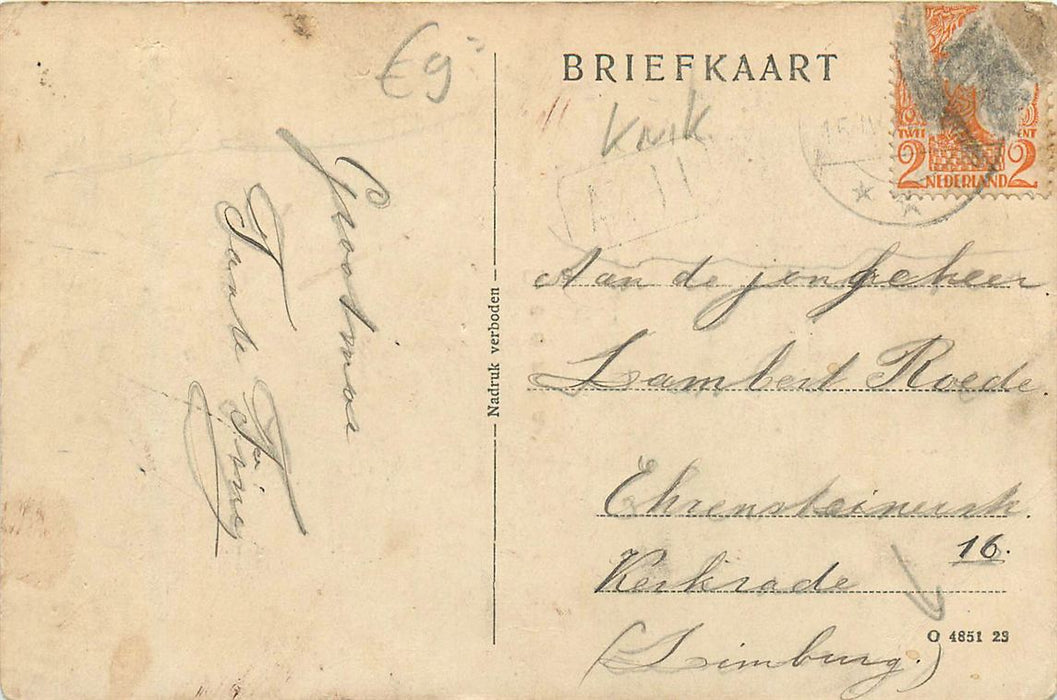 €9
BRIEFKAART
KNIK
TWEE CENT
2 NEDERLAND 2
Grootmoe
Tante Finy
Nadruk verboden
Aan de jongeheer
Lambert Roede
16.
Kerkrade
(Limburg.)
O 4851 23